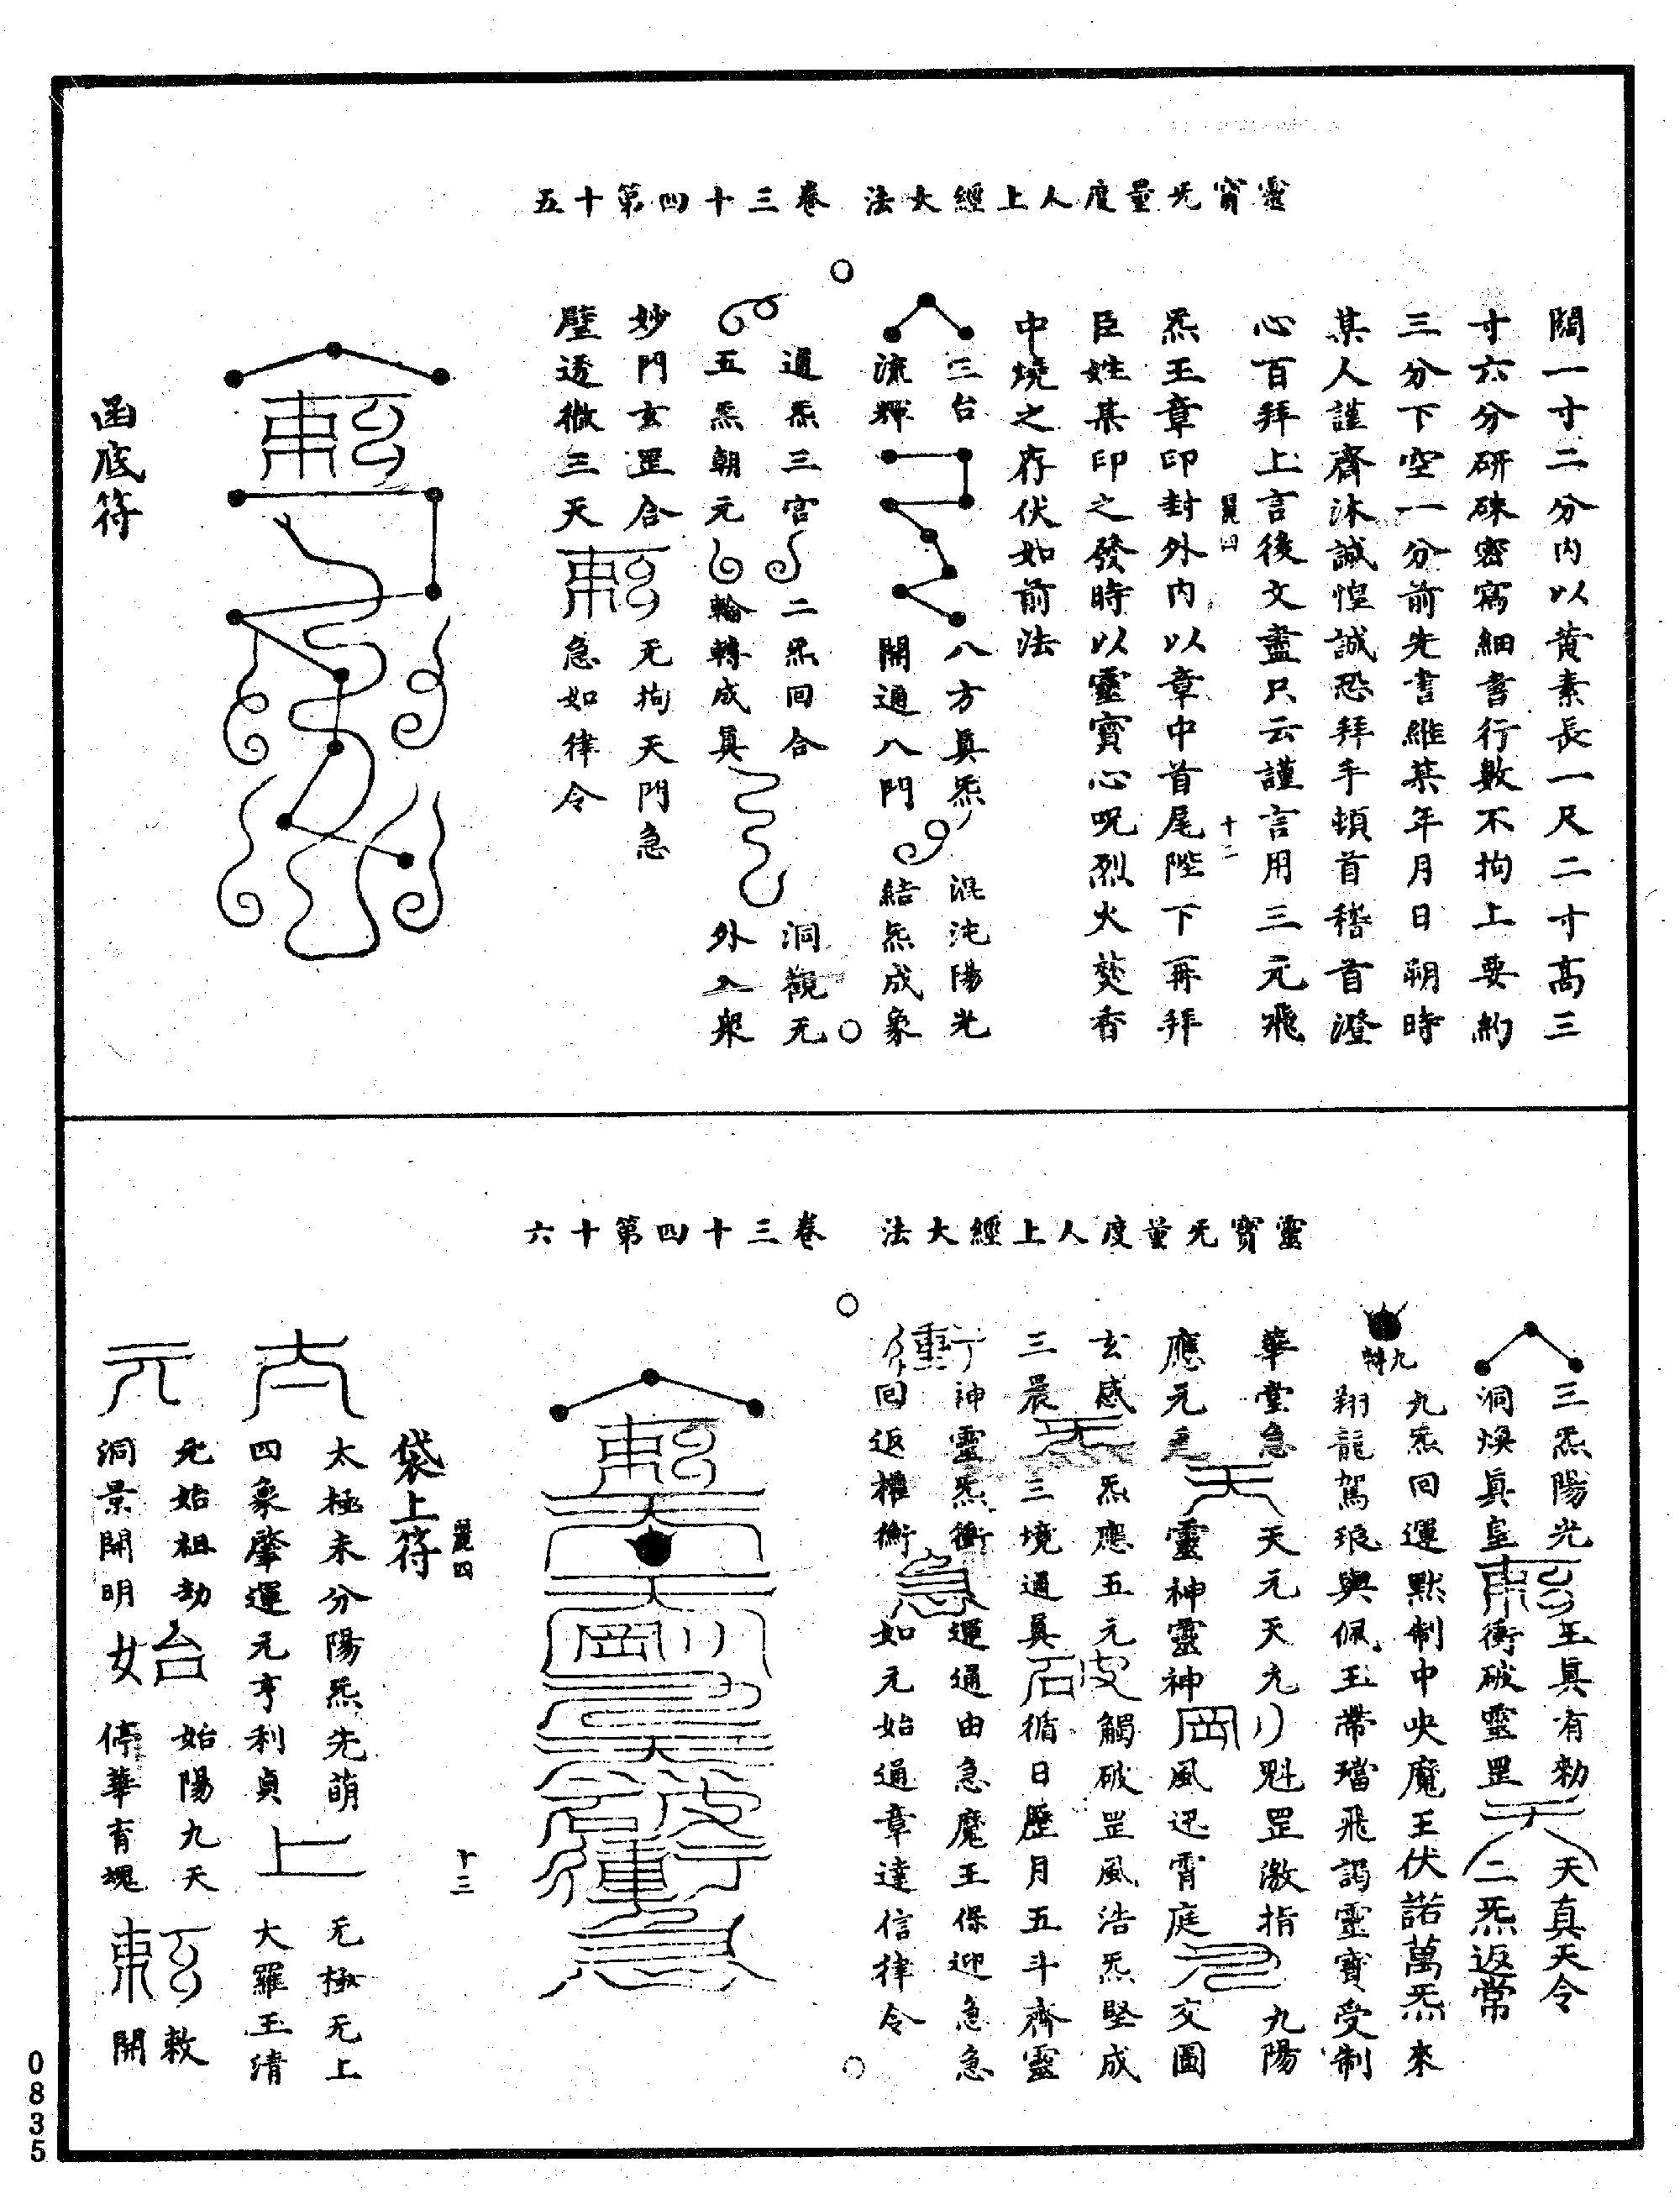 靈寳无量度人上經大法　卷三十四第十五
闊一寸二分内以黄素長一尺二寸高三
寸六分研硃密寫細書行數不拘上要約
三分下空一分前先書維某年月日朔時
某人謹齋沐誠惶誠恐拜手頓首稽首澄
心百拜上言後文盡只云謹言用三元飛
麗四　十二
炁玉章印封外内以章中首尾陛下再拜
臣姓某印之發時以靈寳心呪烈火焚香
中燒之存伏如前法
三台　八方真炁　混沌陽光
流輝　開通八門　結炁成象
通炁三官　二炁回合　洞觀无
五炁朝元　輪轉成真　外入衆
妙門玄罡合　无拘天門急
壁透徹三天　急如律令
函底符
靈寳无量度人上經大法　卷三十四第十六
三炁陽光　玉真有勑　天真天令
洞煥真皇　衝破靈罡　二炁返常
九炁回運默制中央魔王伏諾萬炁來
翔龍駕琅輿佩玉帶璫飛謁靈寳受制
華堂急　天元天元　魁罡激指　九陽
應元　靈神靈神　罡風迅霄庭　交圖
玄感　炁應五元　觸破罡風浩炁堅成
三晨　三境通真　循日歷月五斗齊靈
神靈炁衝　運通由急魔王保迎急急
回返權衡　如元始通章達信律令
袋上符
麗四　十三
太極未分陽炁先萌　无極无上
四象肇運元亨利貞　上　大羅玉清
元始祖劫　台　始陽九天　敕
洞景開明　女　停華育魂　開
0835